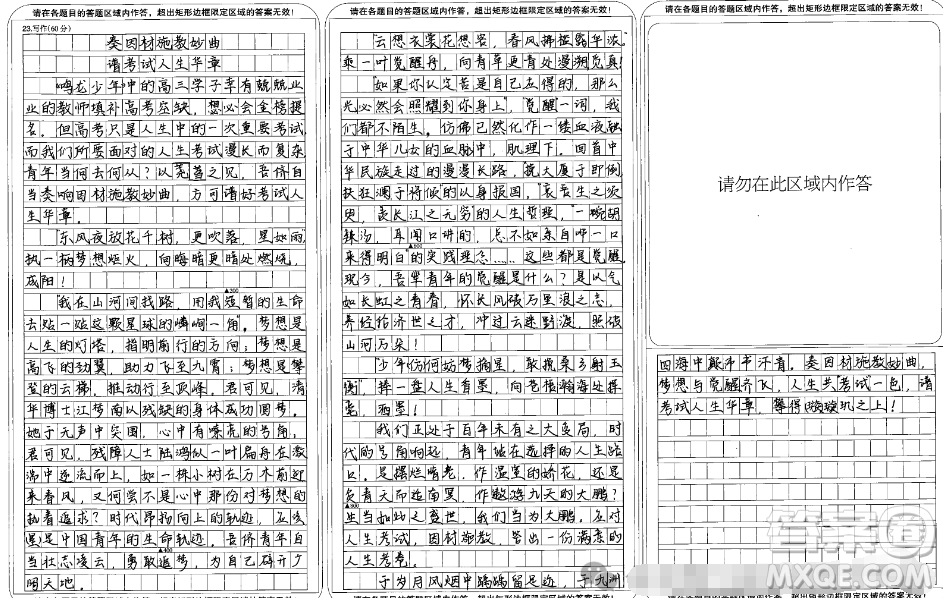 请在各题目的答题区域内作答，超出矩形边框限定区域的答案无效！
23.写作(60分)
奏因材施教妙曲
谱考试人生华章
《鸣龙少年》中的高三学子幸有兢兢业
业的教师填补高考空缺，想必会金榜提
名，但高考只是人生中的一次重要考试
而我们所要面对的人生考试漫长而复杂
青年当何去何从？以之见，吾侪自
当奏响因材施教妙曲，方可谱好考试人
生华章。
"东风夜放花千树，更吹落，星如雨"
执一柄梦想烟火，向晦暗更暗处燃烧，
成阳！
"我在山河间找路，用我短暂的生命
去贴一贴这颗星球的嶙峋一角"。梦想是
人生的灯塔，指明前行的方向；梦想是
高飞的劲翼，助力飞至九霄；梦想是攀
登的云梯，推动行至顶峰。君可见，清
华博士江梦南以残缺的身体成功圆梦。
她于无声中突围，心中有嘹亮的号角。
君可见，残障人士陆鸿似一叶扁舟在激
湍中逆流而上，如一株小树在万木前迎
来春风，又何尝不是心中那份对梦想的
执着追求？时代昂扬向上的轨迹，在
是中国青年的生命轨迹。吾侪青年自
当壮志凌云，勇敢追梦，为自己辟开
明天地。
请在各题目的答题区域内作答，超出矩形边框限定区域的答案无效！
云想衣裳花想容，春风拂槛露华浓。
乘一叶觉醒舟，向青草更青处漫溯觅真！
"如果你认定苦是自己应得的，那么
光必然会照耀到你身上"，觉醒一词，我
们都不陌生。仿佛已然化作一缕血液融
于中华儿女的血脉中，肌理下。回首中
华民族走过的漫漫长路，"救大厦于即倒
扶狂澜于将倾"的以身报国，"哀吾生之须
臾，羡长江之无穷"的人生哲理，"一碗胡
辣汤，耳闻口讲的，总不如亲自呷一口
来得明白"的实践理念……这些都是觉醒
现今，吾辈青年的觉醒是什么？是以气
如长虹之青春，怀长风破万里浪之志，
养经纶济世之才，冲过云迷野渡，照破
山河万朵！
少年仿何妨梦摘星，敢挽桑弓射玉
衡，捧一盘人生香墨，向苍茫瀚海处挥
毫，洒墨！
我们正处于百年未有之大变局，时
代的号角响起，青年站在选择的人生路
口。是摆烂啃老，作温室的娇花，还是
负青天而适南冥，作遨游九天的大鹏？
生当如此之盛世，我们当为大鹏，应对
人生考试，因材施教，答出一份满意的
人生考卷。
于岁月风烟中踽踽留足迹，于九洲
请在各题目的答题区域内作答，超出矩形边框限定区域的答案无效！
请勿在此区域内作答
四海中觑乎书汗青。奏因材施教妙曲，
梦想与觉醒齐飞，人生共考试一色，谱
考试人生华章，璇玑之上！
答案圈
MXQE.COM